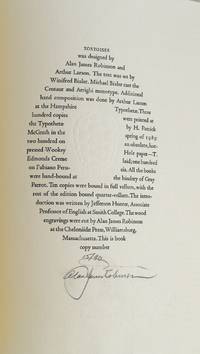 TORTOISES
was designed by
Alan James Robinson and
Arthur Larson. The text was set by
Winifred Bixler. Michael Bixler cast the
Centaur and Arrighi monotype. Additional
hand composition was done by Arthur Larson
at the Hampshire Typothetæ. Three
hundred copies were printed at
the Typothetæ by H. Patrick
McGrath in the spring of 1983
two hundred on an obsolete, hot-
pressed Wookey Hole paper—T.
Edmonds Creme laid; one hundred
on Fabriano Peru- sia. All the books
were hand-bound at the bindery of Gray
Parrot. Ten copies were bound in full vellum, with the
rest of the edition bound quarter-vellum. The intro-
duction was written by Jefferson Hunter, Associate
Professor of English at Smith College. The wood
engravings were cut by Alan James Robinson
at the Cheloniidae Press, Williamsburg,
Massachusetts. This is book
copy number
Alan James Robinson